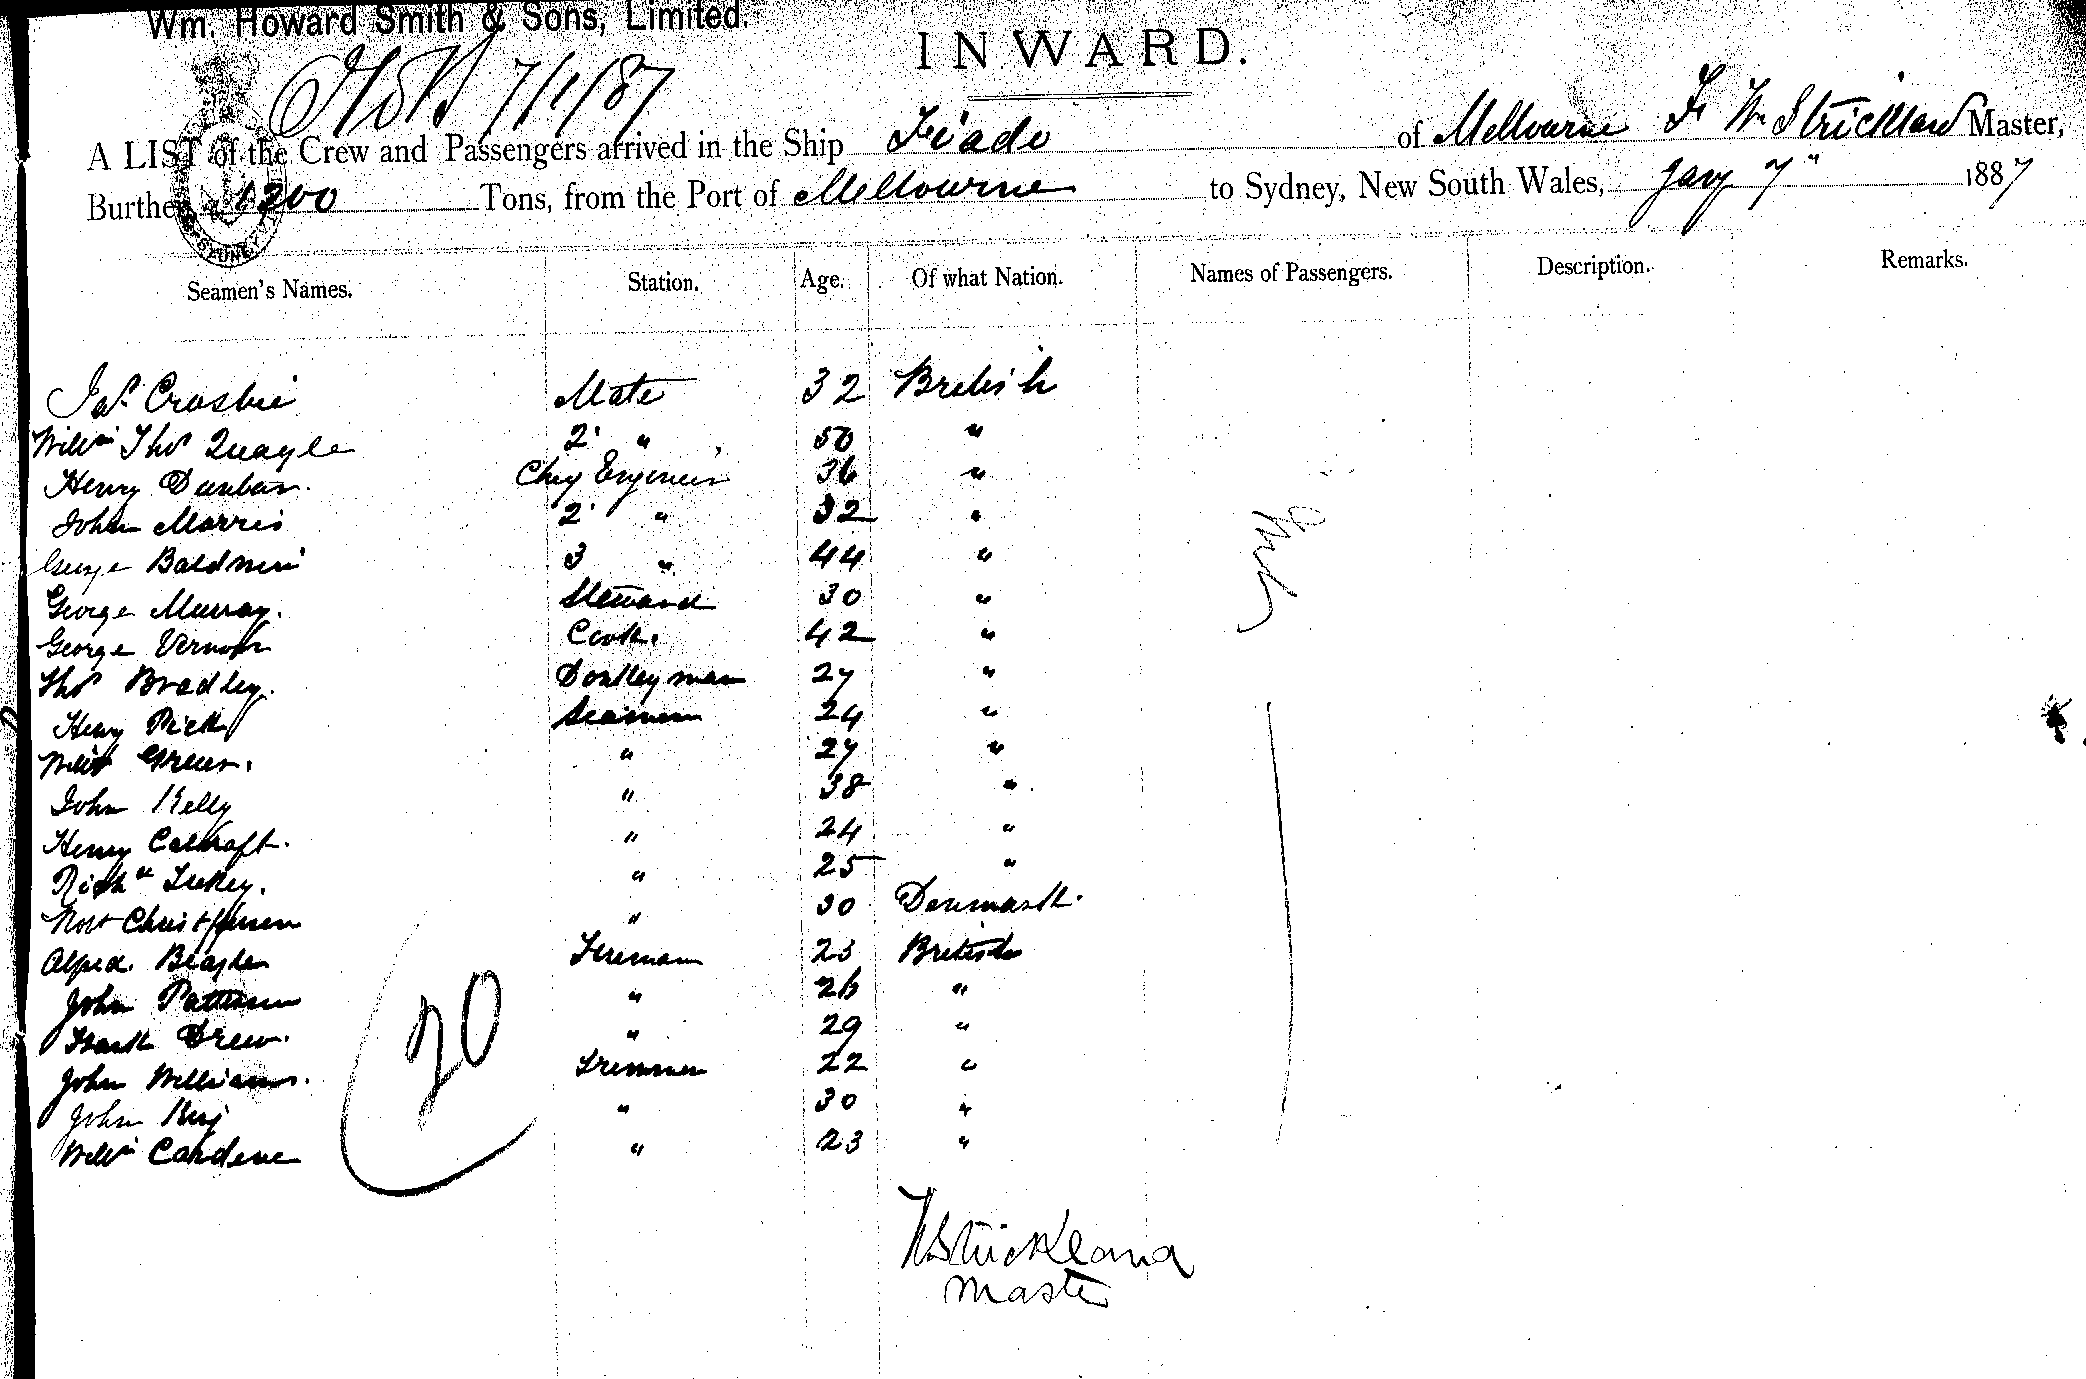 Wm. Howard Smith & Sons, Limited.
INWARD.
7/1/87
A LIST of the Crew and Passengers arrived in the Ship of Melbourne Wm Strickland Master,
Burthen 1200 Tons, from the Port of Melbourne to Sydney, New South Wales, Jany 7" 1887
Seamen's Names. Station. Age. Of what Nation. Names of Passengers. Description. Remarks.
Jas. Crosbie Mate 32 British
Willm Thos Quayle 2 " 50 "
Henry Dunbar. Chief Engineer 36 "
John Morris 2 " 32 "
George Baldwin 3 " 44 "
George Murray. Steward 30 "
George Vernon Cook. 42 "
Thos Bradley. Donkeyman 27 "
Henry Seaman 24 "
Willm Green. " 27 "
John Kelly " 38 "
Henry Calcraft. " 24 "
Richd " 25 "
" 30 Denmark.
Alfred Fireman 23 British
John Patterson " 26 "
Frank Drew. " 29 "
John Williams. Trimmer 22 "
John " 30 "
Willm " 23 "
20
W Strickland
Master